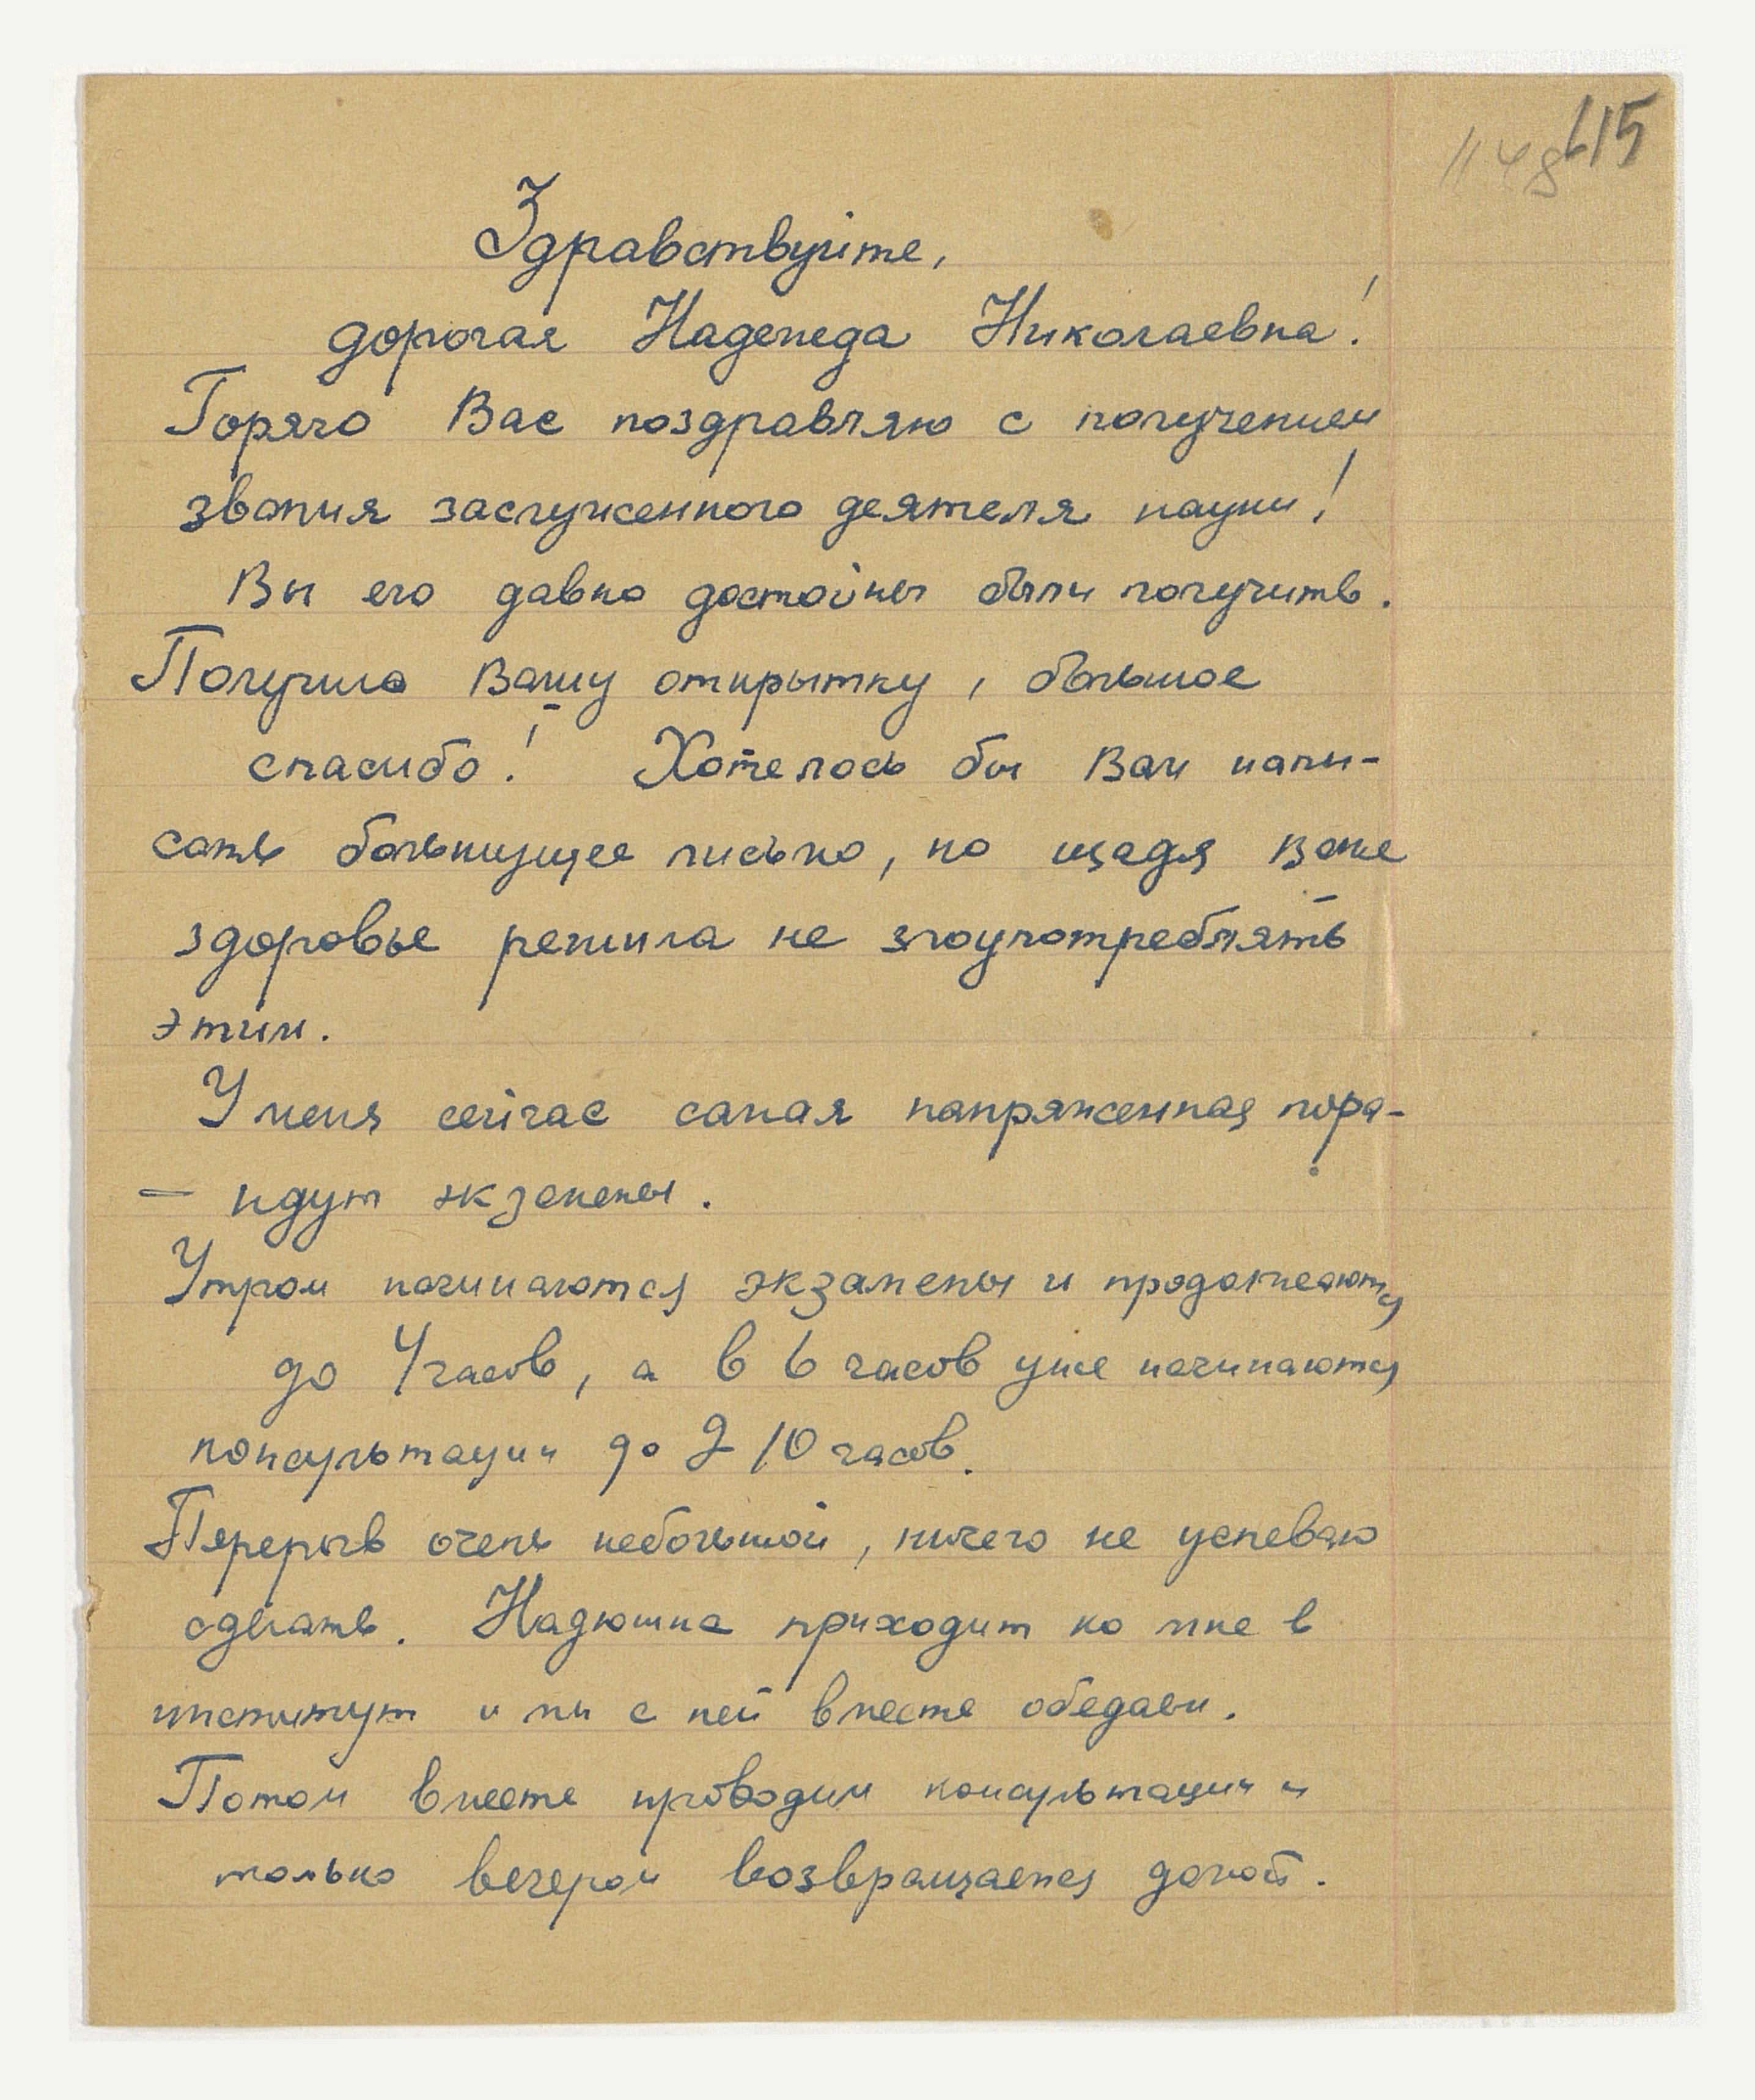 115
1148
Здравствуйте,
дорогая Надежда Николаевна!
Горячо Вас поздравляю с получением
звания заслуженного деятеля науки!
Вы его давно достойны были получить.
Получила Вашу открытку, большое
спасибо! Хотелось бы Вам напи-
сать большущее письмо, но щадя Ваше
здоровье решила не злоупотреблять
этим.
У меня сейчас самая напряженная пора-
— идут экзамены.
Утром начинаются экзамены и продолжаются
до 4 часов, а в 6 часов уже начинаются
консультации до 9 10 часов.
Перерыв очень небольшой, ничего не успеваю
сделать. Надюшка приходит ко мне в
институт и мы с ней вместе обедаем.
Потом вместе проводим консультации и
только вечером возвращаемся домой.